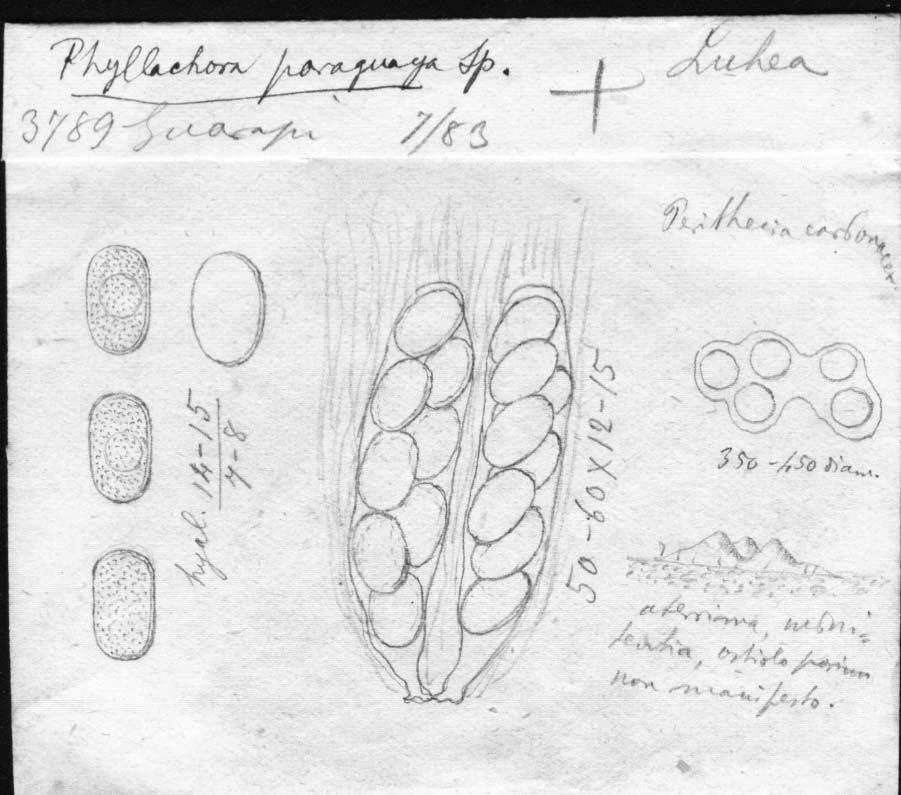 Phyllachora paraguaya Sp. + Luhea
3789 Guarapi 7/83
Perithecia carbonacea
hyal. 14-15
7-8
50-60X12-15
350-450 diam.
aterrima, subni=
tentia, ostiolo parum
non manifesto.